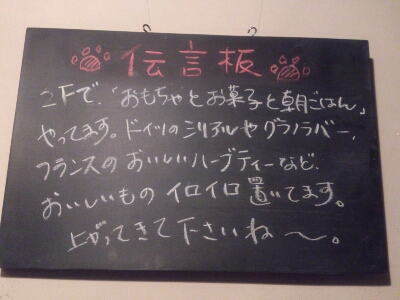 伝言板
2Fで、「おもちゃとお菓子と朝ごはん」
やってます。ドイツのシリアルやグラノラバー、
フランスのおいしいハーブティーなど、
おいしいもの イロイロ 置いてます。
上がってきて下さいね〜。